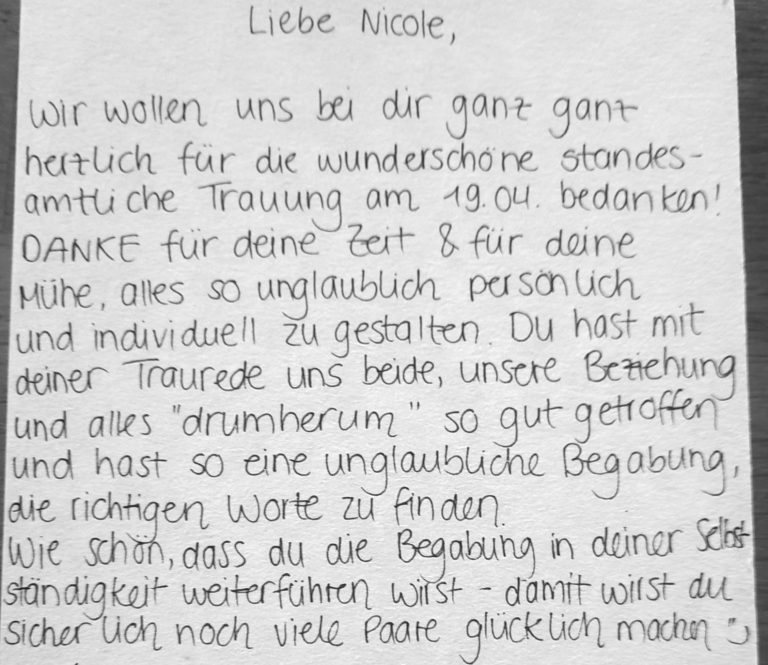 Liebe Nicole,
Wir wollen uns bei dir ganz ganz
herzlich für die wunderschöne standes-
amtliche Trauung am 19.04. bedanken!
DANKE für deine Zeit & für deine
Mühe, alles so unglaublich persönlich
und individuell zu gestalten. Du hast mit
deiner Traurede uns beide, unsere Beziehung
und alles "drumherum" so gut getroffen
und hast so eine unglaubliche Begabung,
die richtigen Worte zu finden.
Wie schön, dass du die Begabung in deiner Selbst-
ständigkeit weiterführen wirst - damit wirst du
sicherlich noch viele Paare glücklich machen :)